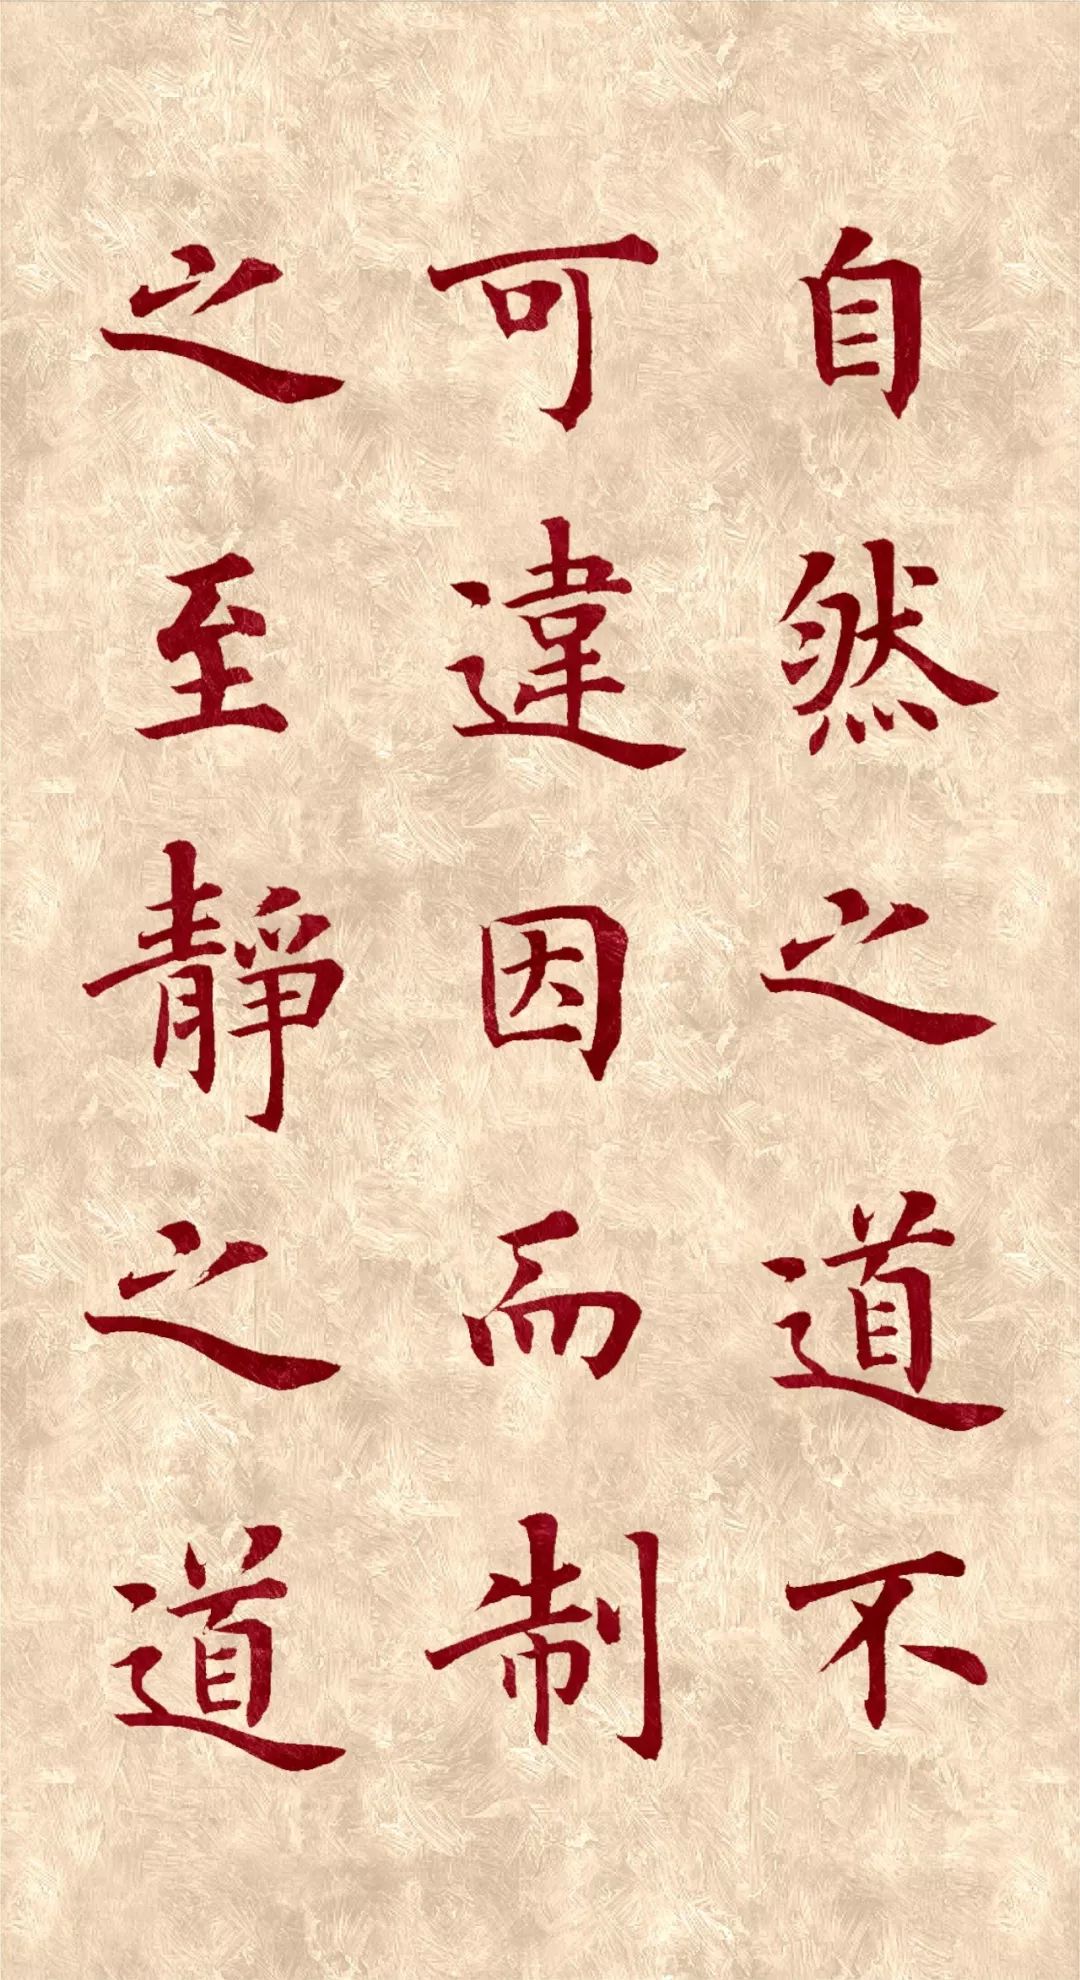 自然之道不
可違因而制
之至靜之道